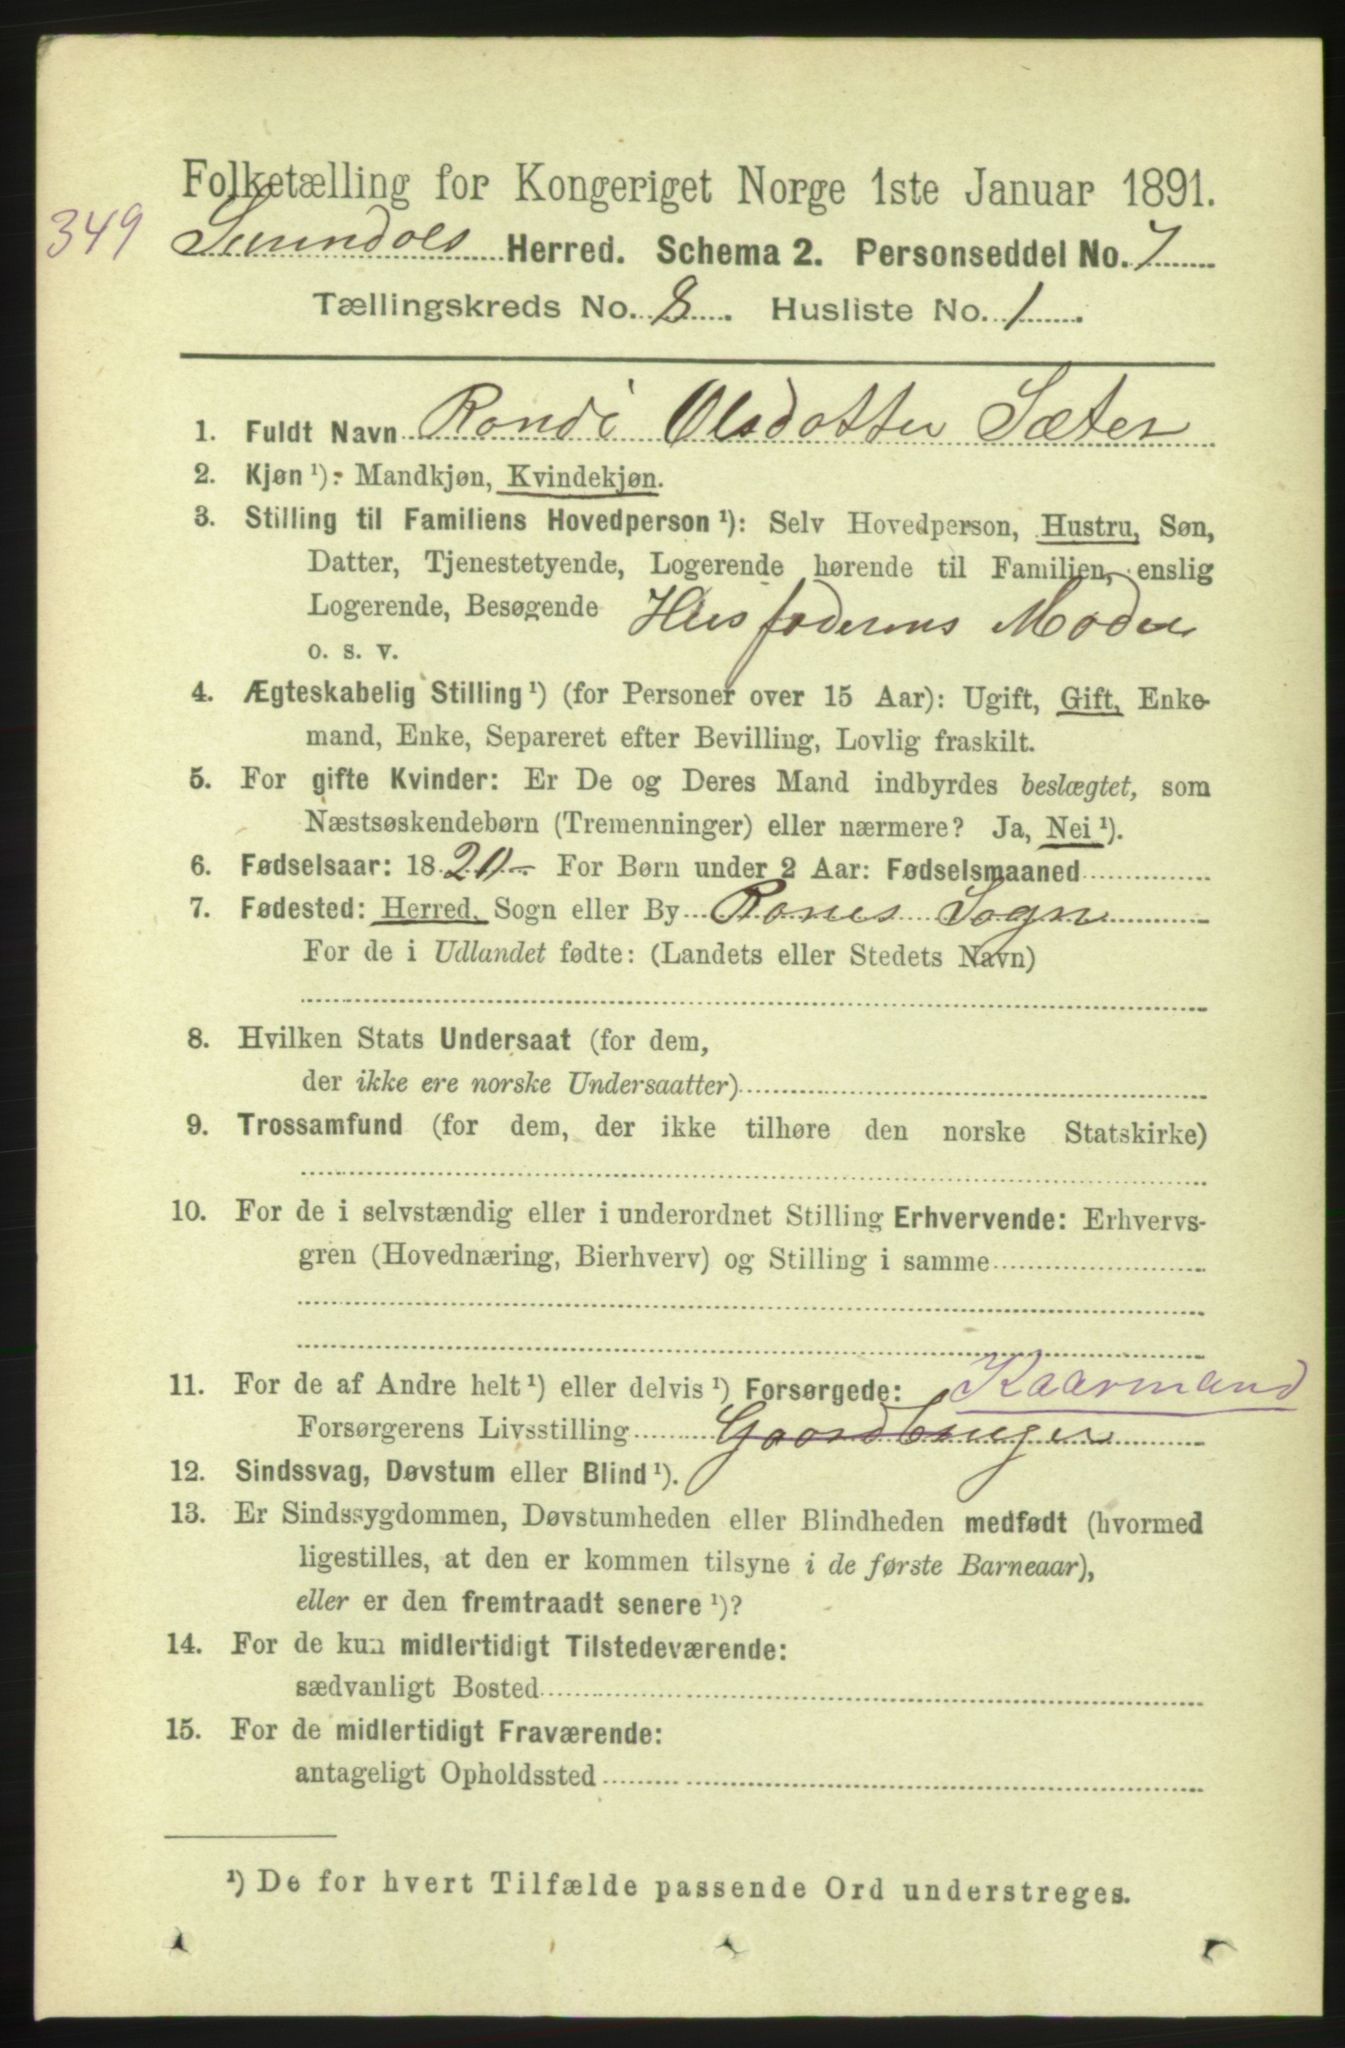 Folketælling for Kongeriget Norge 1ste Januar 1891.
349 Surendals Herred. Schema 2. Personseddel No. 7
Tællingskreds No. 8. Husliste No. 1.
1. Fuldt Navn Randi Olsdatter Sæter
2. Kjøn ¹): Mandkjøn, Kvindekjøn.
3. Stilling til Familiens Hovedperson ¹): Selv Hovedperson, Hustru, Søn,
Datter, Tjenestetyende, Logerende hørende til Familien, enslig
Logerende, Besøgende Husfaderens Moder
o. s. v.
4. Ægteskabelig Stilling ¹) (for Personer over 15 Aar): Ugift, Gift, Enke-
mand, Enke, Separeret efter Bevilling, Lovlig fraskilt.
5. For gifte Kvinder: Er De og Deres Mand indbyrdes beslægtet, som
Næstsøskendebørn (Tremenninger) eller nærmere? Ja, Nei ¹).
6. Fødselsaar: 1820 For Børn under 2 Aar: Fødselsmaaned
7. Fødested: Herred, Sogn eller By Ranes Sogn
For de i Udlandet fødte: (Landets eller Stedets Navn)
8. Hvilken Stats Undersaat (for dem,
der ikke ere norske Undersaatter)
9. Trossamfund (for dem, der ikke tilhøre den norske Statskirke)
10. For de i selvstændig eller i underordnet Stilling Erhvervende: Erhvervs-
gren (Hovednæring, Bierhverv) og Stilling i samme
11. For de af Andre helt ¹) eller delvis ¹) Forsørgede: Kaarmand
Forsørgerens Livsstilling Gaardbruger
12. Sindssvag, Døvstum eller Blind ¹).
13. Er Sindssygdommen, Døvstumheden eller Blindheden medfødt (hvormed
ligestilles, at den er kommen tilsyne i de første Barneaar),
eller er den fremtraadt senere ¹)?
14. For de kun midlertidigt Tilstedeværende:
sædvanligt Bosted
15. For de midlertidigt Fraværende:
antageligt Opholdssted
¹) De for hvert Tilfælde passende Ord understreges.